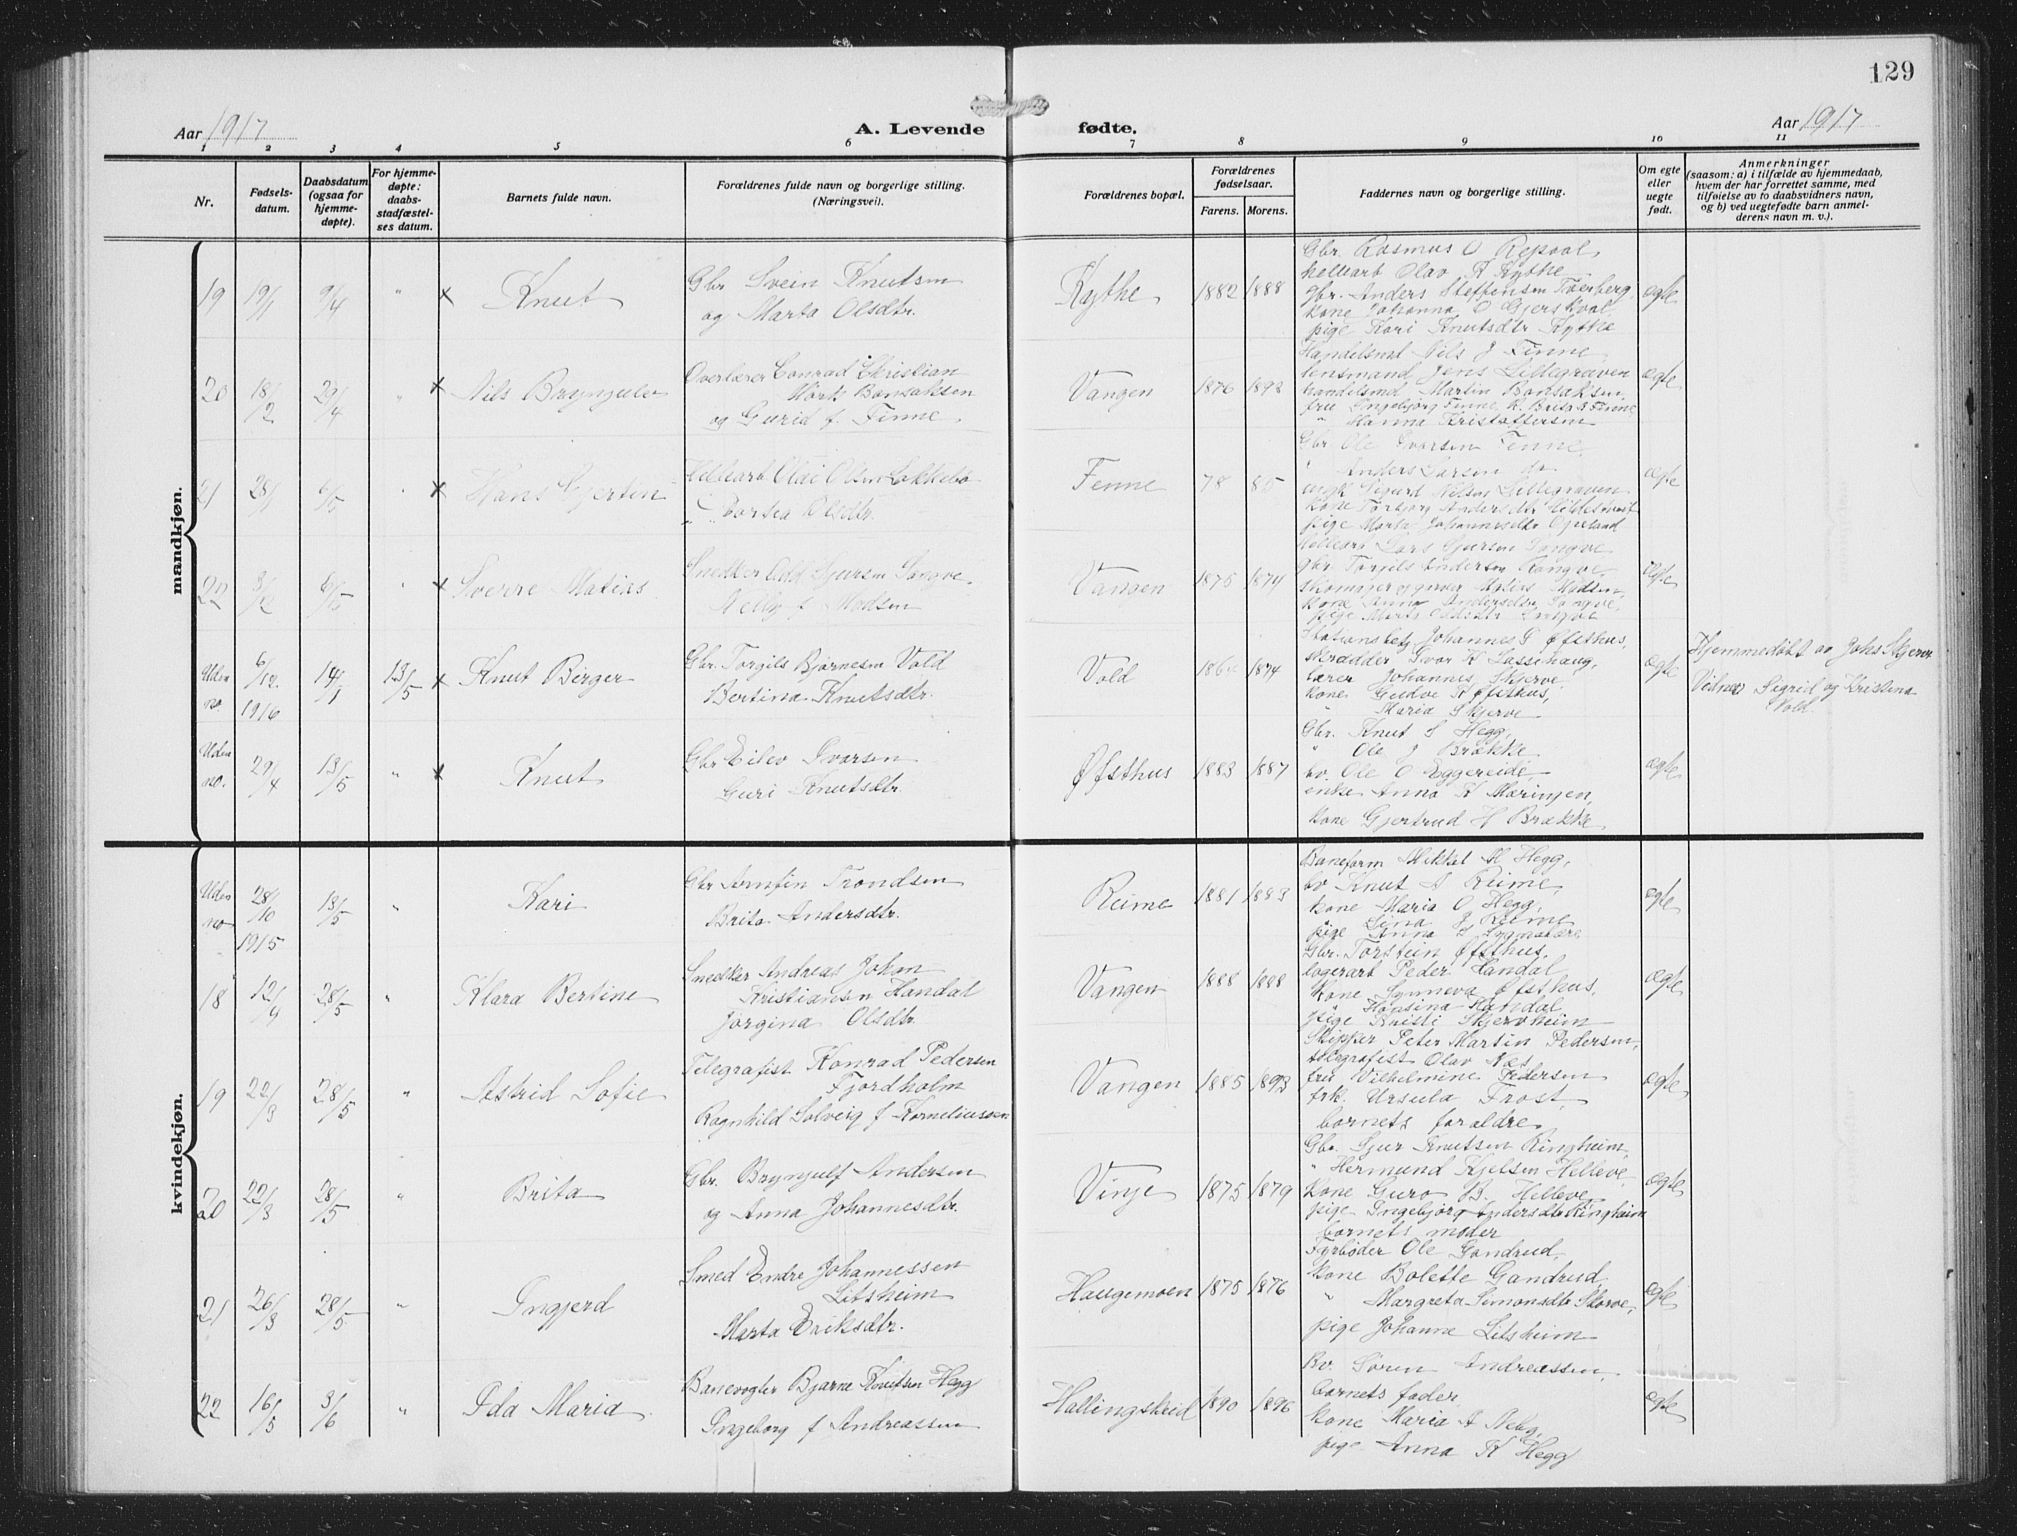 129
Aar 1917
A. Levende fødte.
Aar 1917
1 2 3 4 5 6 7 8 9 10 11
Nr.
Fødsels-
datum.
Daabsdatum
(ogsaa for
hjemme-
døpte).
For hjemme-
døpte:
daabs-
stadfæstel-
ses datum.
Barnets fulde navn.
Forældrenes fulde navn og borgerlige stilling.
(Næringsvei).
Forældrenes bopæl.
Forældrenes
fødselsaar.
Farens. Morens.
Faddernes navn og borgerlige stilling.
Om egte
eller
uegte
født.
Anmerkninger
(saasom: a) i tilfælde av hjemmedaab,
hvem der har forrettet samme, med
tilføielse av to daabsvidners navn,
og b) ved uegtefødte barn anmel-
derens navn m. v.).
mandkjøn.
19 19/1 9/4 " x Knut
Gbr Svein Knutsen
og Marta Olsdtr.
Kythe 1882 1888
Gbr. Rasmus O Repaal,
Olav K Kythe
gbr. Anders Steffensen
kone Johanna O Gjerskval
pige Kari Knutsdtr Kythe
egte
20 18/2 29/4 " x Nils Brynjulv
Overlærer Conrad Christian
Mørk Bonsaksen
og Gurid f. Finne
Vangen 1876 1892
Handelsmd Nils J Finne
lensmand Jens Lillegraven
handelsmd Martin Bonsaksen,
fru Ingebjørg Finne, K. Brita Finne
" Hanna Kristoffersen
egte
21 28/1 6/5 " x Hans Gjertin
Olai Olsen Løkkebø
" Olsdtr.
Finne 78 85
Gbr Ole Ivarsen Finne,
" Anders Larsen do
Sigurd Nilsen Lillegraven
kone Torbjørg Andersdtr
pige Marta Johannesdtr Opeland
egte
22 3/12 6/5 " x Sverre Matias
Snedker Odd Sjursen Songve
Nelly f Madsen
Vangen 1875 1874
Lars Sjursen Songve
gbr Andersen Rongve
Matias Madsen,
kone Anna Songve,
pige Marta
egte
Uden no 6/12 1916 14/1 13/5 x Knut Birger
Gbr. Torgils Bjørnesen Vold
Bertina Knutsdtr.
Vold 1874
Johannes Øfsthus,
skrædder Ivar K Lassehaug,
lærer Johannes Skjerve
kone Gudve K Øfsthus,
" Maria Skjerve
egte
Hjemmedøbt av Johs Skjerve
Vidner Sigrid og Kristina
Vold.
Uden no. 29/4 13/5 " x Knut
Gbr Eilev Ivarsen
Guri Knutsdtr.
Øfsthus 1883 1887
Gbr. Knut S Hegg,
" Ole J Brække
bv. Ole O Eggereide,
enke Anna K Mæringen,
kone Gjertrud H Brække
egte
kvindekjøn.
Uden no 28/10 1915 13/5 " Kari
Gbr Arnfin Trondsen
Brita Andersdtr.
Reime 1881 1883
Baneform Mikkal M Hegg,
bv Knut A Reime,
kone Maria O Hegg,
" Sina J Reime
pige Anna
egte
18 12/4 28/5 " Klara Bertine
Snedker Andreas Johan
Kristiansen Handal
Jørgina Olsdtr.
Vangen 1888 1888
Gbr. Torstein Øfsthus,
lagerarb Peder Handal
kone Synneva Øfsthus,
" Hansina Handal
pige Kristi Skjervheim
egte
19 22/3 28/5 " Astrid Sofie
Telegrafist Konrad Pedersen
Fjordholm
Ragnhild Solveig f Korneliussen
Vangen 1885 1893
Skipper Peter Martin Pedersen,
telegrafist Olav Næs
fru Vilhelmine Pedersen
frk. Ursula Frost,
barnets forældre
egte
20 22/3 28/5 " Brita
Gbr. Brynjulf Andersen
og Anna Johannesdtr.
Vinje 1875 1879
Gbr Sjur Knutsen Ringheim,
" Hermund Kjelsen Helleve,
kone Guro B. Helleve
pige Ingebjørg Andersdtr Ringheim
barnets moder
egte
21 26/3 28/5 " Ingjerd
Smed Endre Johannessen
Litsheim
Marta Eriksdtr.
Haugemoen 1875 1876
Fyrbøder Ole Gandrud,
kone Bolette Gandrud
" Margreta Simonsdtr Skorve,
pige Johanna Litsheim
egte
22 16/5 3/6 " Ida Maria
Banevogter Bjarne Knutsen Hegg
Ingeborg f Andreassen
Hallingskeid 1890 1896
Bv. Søren Andreassen,
barnets fader,
kone Maria A
pige Anna K Hegg
egte